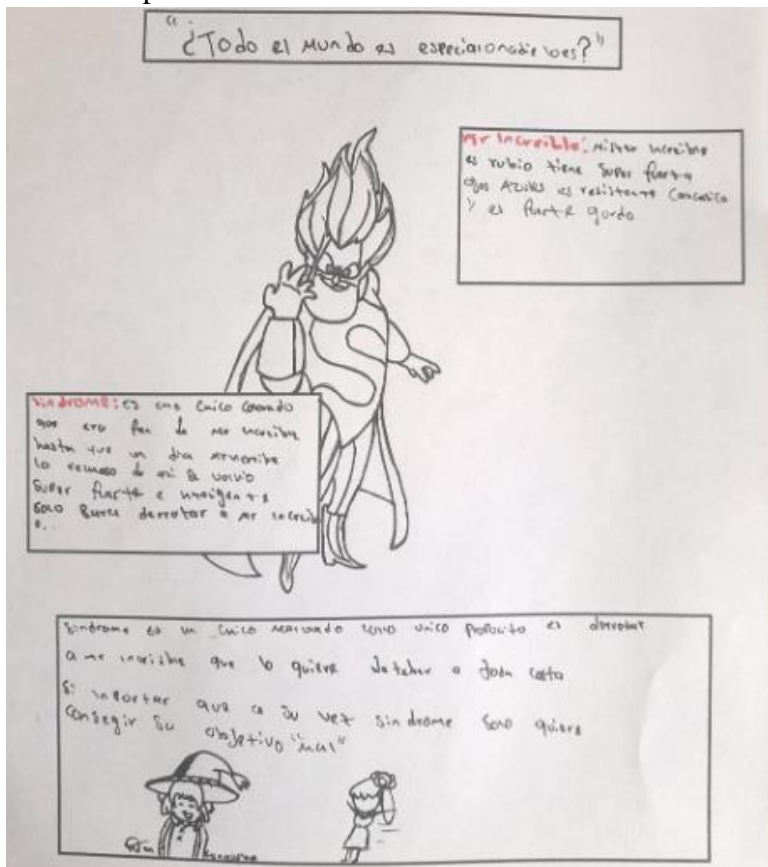 "¿Todo el mundo es especial o nadie lo es?"
Mr Increible: Mister increible
es rubio tiene super fuerza
ojos Azules es resistente
y es fuerte gordo
Sindrome: es una chico
que era fan de mr increible
hasta que un dia
lo de ai se volvio
super fuerte e
solo busca derrotar a mr increible
Sindrome es un chico como unico proposito es derrotar
a mr increible que lo quiere detener a toda costa
si inportar que a su vez sindrome solo quiere
consegir su objetivo "mal"